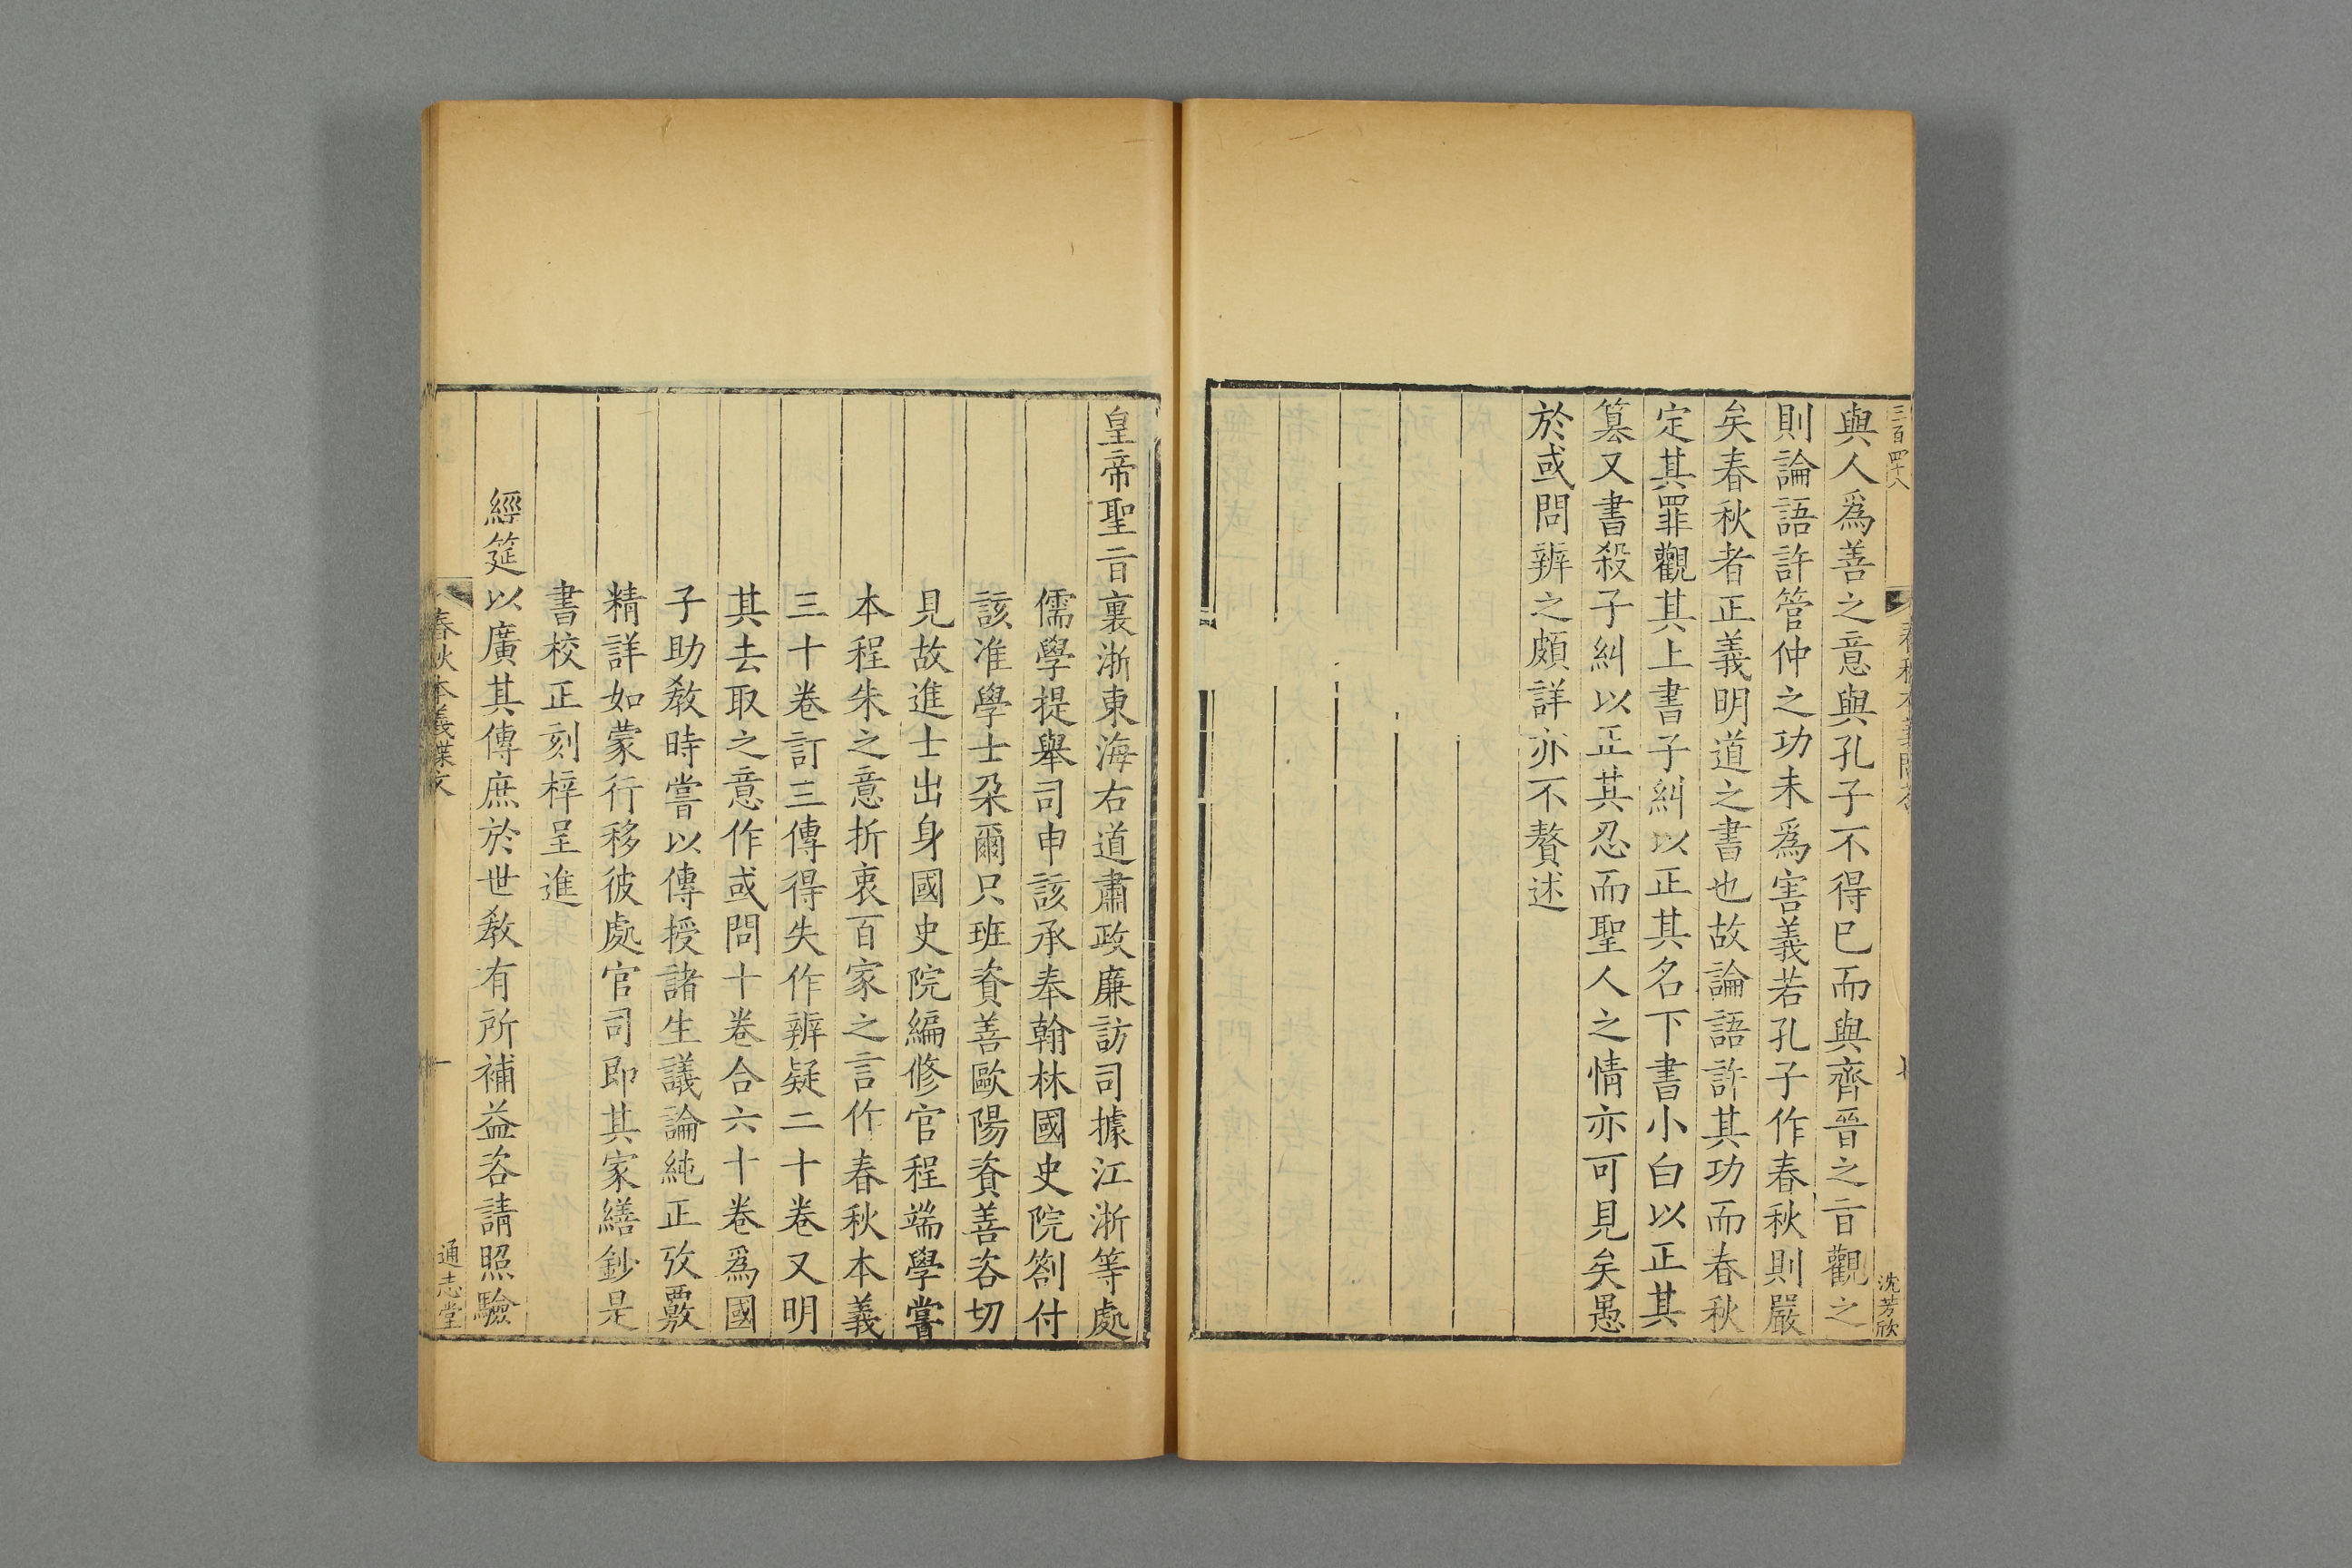 三百四十八
沈芳欣
與人爲善之意與孔子不得已而與齊晉之㫖觀之
則論語許管仲之功未爲害義若孔子作春秋則嚴
矣春秋者正義明道之書也故論語許其功而春秋
定其罪觀其上書子糾以正其名下書小白以正其
簒又書殺子糾以正其忍而聖人之情亦可見矣愚
於或問辨之頗詳亦不贅述
皇帝聖㫖裏浙東海右道肅政廉訪司據江浙等處
儒學提舉司申該承奉翰林國史院劄付
該准學士朶爾只班資善歐陽資善咨切
見故進士出身國史院編修官程端學嘗
本程朱之意折衷百家之言作春秋本義
三十卷訂三傳得失作辨疑二十卷又明
其去取之意作或問十卷合六十卷爲國
子助敎時嘗以傳授諸生議論純正攷覈
精詳如蒙行移彼處官司即其家繕鈔是
書校正刻梓呈進
經筵以廣其傳庶於世敎有所補益咨請照驗
春秋本義牒文
一
通志堂